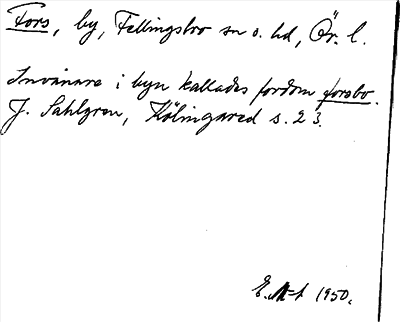 Fors, by, Fellingsbro sn o. hd, Ör. l.
Invånare i byn kallades fordom forsbo.
J. Sahlgren, Hälsingared s. 23.
1950.